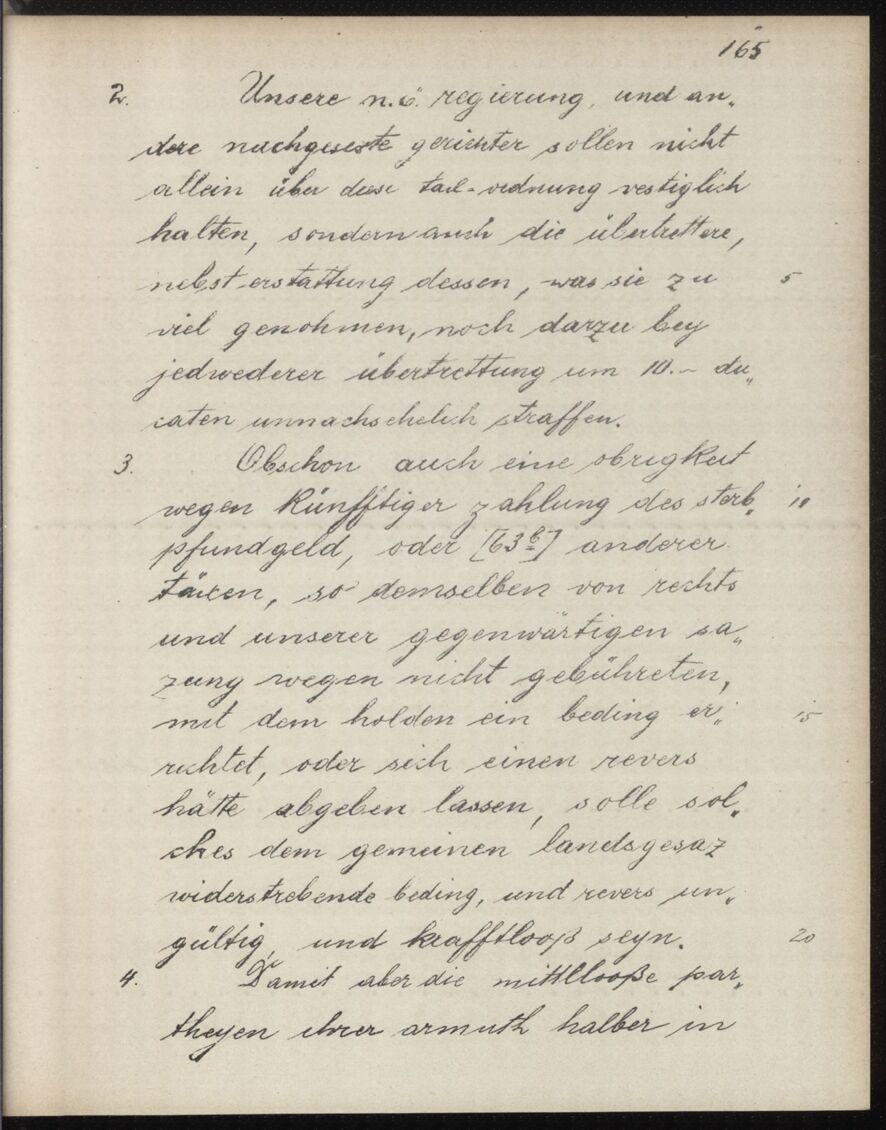 165
2. Unsere n.ö. regierung, und an„
dere nachgesezte gerichter sollen nicht
allein über diese tax-ordnung vestiglich
halten, sondern auch die übertrettere,
nebst erstattung dessen, was sie zu 5
viel genohmen, noch darzu bey
jedwederer übertrettung um 10.- du„
caten unnachsehelich straffen.
3. Obschon auch eine obrigkeit
wegen künfftiger zahlung des sterb„ 10
pfundgeld, oder [63b] anderer
täxen, so demselben von rechts
und unserer gegenwärtigen sa„
zung wegen nicht gebühreten,
mit dem holden ein beding er„ 15
richtet, oder sich einen revers
hätte abgeben lassen, solle sol„
ches dem gemeinen landsgesaz
widerstrebende beding, und revers un„
gültig, und krafftlooß seyn. 20
4. Damit aber die mittllooße par„
theyen ihrer armuth halber in